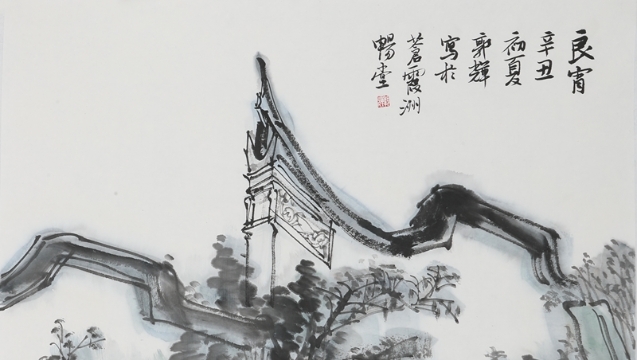 良宵
辛丑
初夏
郭輝
寫於
蒼霞洲
暢堂